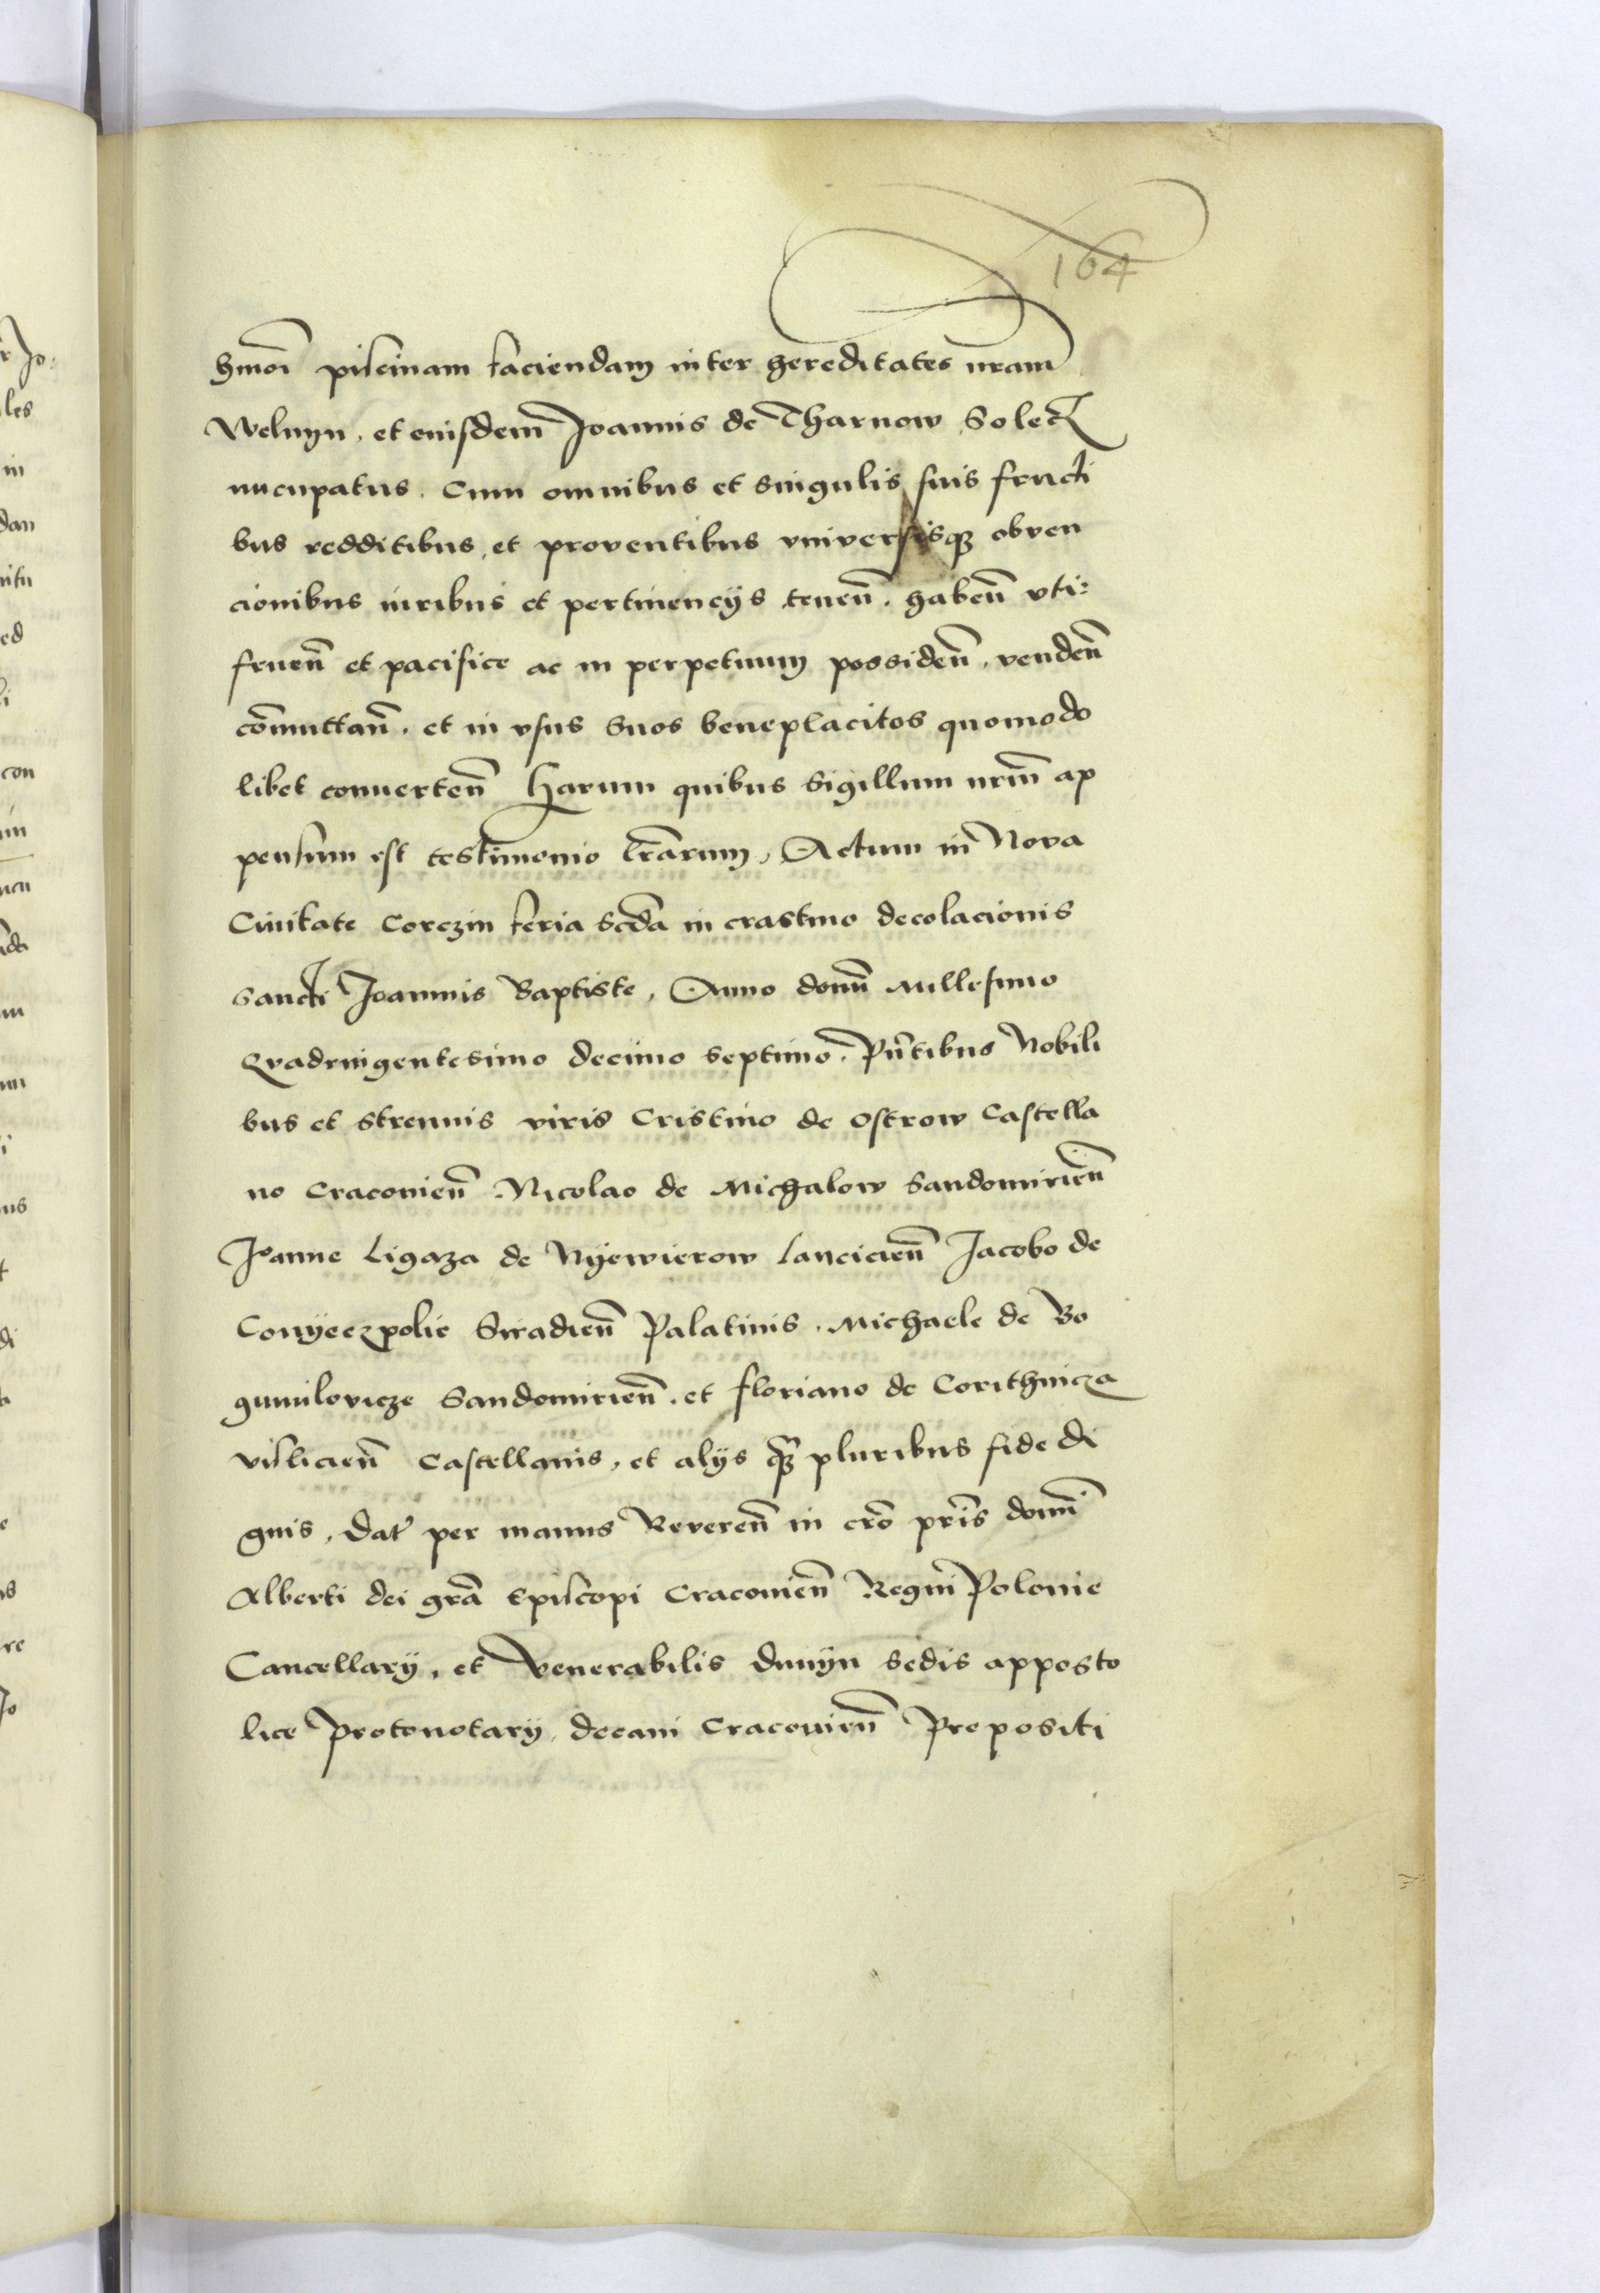 164
hmoi piscinam faciendam inter hereditates nram
Welnyn, et euisdem Joannis de Tharnow Solecz
nucupatus. Cum omnibus et singulis suis fructi
bus redditibus, et proventibus vniversisq obven
cionibus iuribus et pertinencijs tenen. haben vti-
fruen et pacifice ac in perpetuum possiden, venden
comuttan. et in vsus suos beneplacitos quomodo
libet conuerten Harum quibus sigillum nrm ap
pensum est testimonio lrarum, Actum in Nova
Ciuitate Corczin feria scda in crastino decolacionis
sancti Joannis Baptiste, Anno domi Millesimo
Quadringentesimo decimo septimo. Pntibus Nobili
bus et strenuis viris Cristino de Ostrow Castella
no Cracouien Nicolao de Michalow Sandomirien
Joanne Ligaza de Nyewierow Lancicien Jacobo de
Conyeczpolie Siradien Palatinis. Michaele de Bo
gumilovicze Sandomirien. et floriano de Corithnicza
vislicien Castellanis, et alijs q pluribus fide di
gnis, Dat per manus Reveren in cro pris domi
Alberti dei gra Episcopi Cracouien Regni Polonie
Cancellarij, et Venerabilis dunyn sedis apposto
lice Protonotarij, decani Cracouien Prepositi